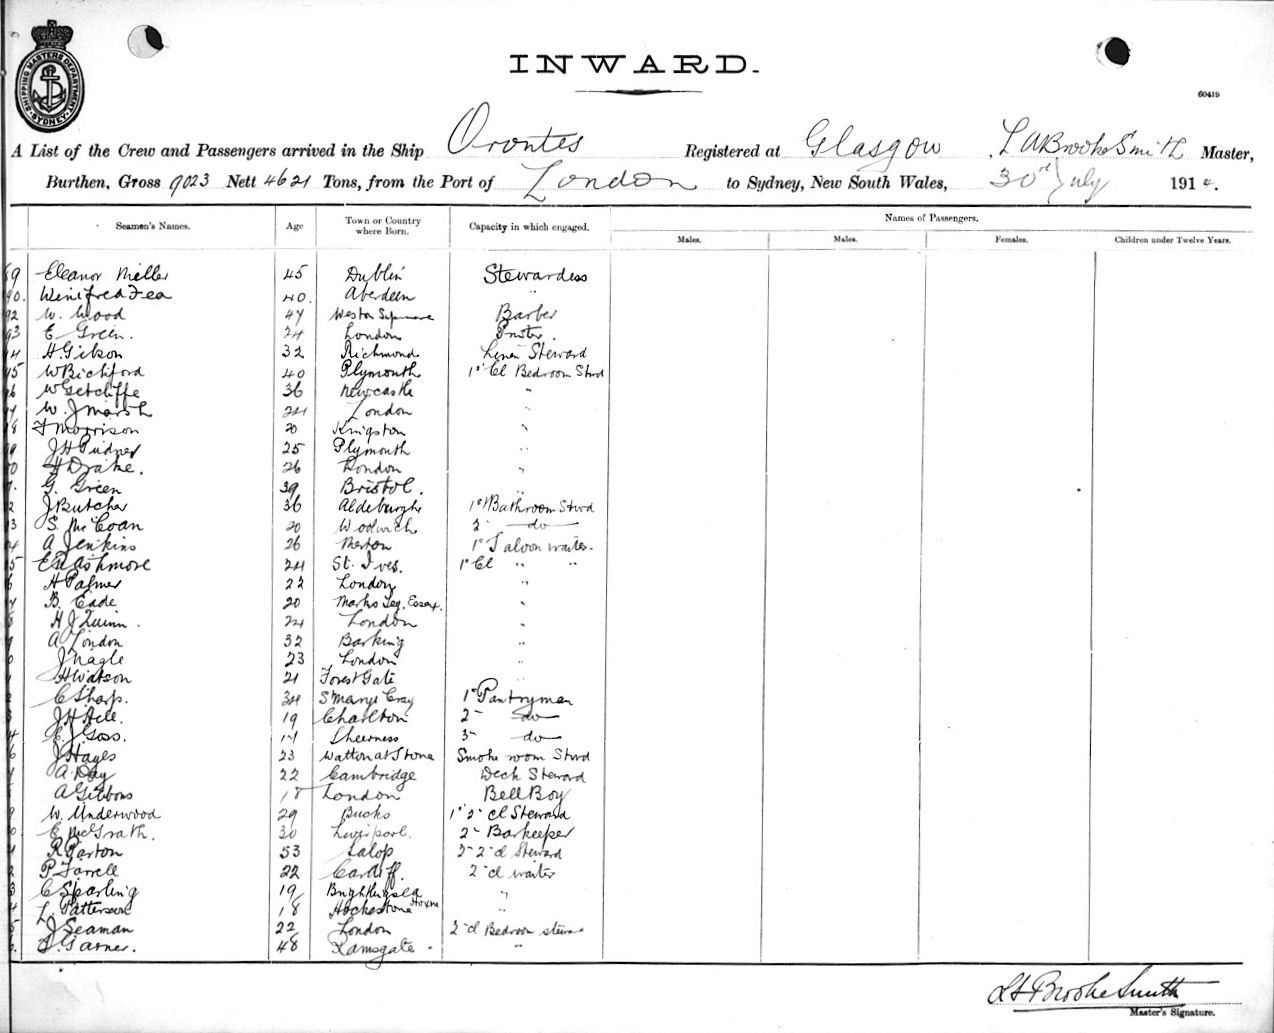 SHIPPING MASTERS DEPARTMENT SYDNEY
INWARD.
60419
A List of the Crew and Passengers arrived in the Ship Orontes Registered at Glasgow L A Brooke Smith Master,
Burthen, Gross 9023 Nett 4621 Tons, from the Port of London to Sydney, New South Wales, 30 July 1914.
Seamen's Names. Age Town or Country where Born. Capacity in which engaged. Names of Passengers.
Males. Males. Females. Children under Twelve Years.
9 Eleanor Miller 45 Dublin Stewardess
90. Winifred Fea 40. Aberdeen "
92 W. Wood 47 Barber
93 E Green. 24 London
H. Gibson 32 Richmond Linen Steward
W Bickford 40 Plymouth 1st Cl Bedroom Stwd
W Getcliffe 36 Newcastle "
W. J Marsh 24 London "
F Morrison 20 Kingston "
J H Pudney 25 Plymouth "
H Drake. 26 London "
G. Green 39 Bristol. "
J Butcher 36 Aldeburgh 1st Bathroom Stwd
S. McCoan 20 Woolwich 2 do
A Jenkins 26 Merton 1st Saloon waiter.
Ashmore 24 St. Ives. 1st Cl " "
H Palmer 22 London "
B. Eade 20 Marks Tey, Essex. "
H J Quinn. 24 London "
A London 32 Barking "
J Nagle 23 London "
H Watson 21 Forest Gate
C Sharp. 34 St Marys Cray 1st Pantryman
J H Hill. 19 Charlton 2 do
E. J. Goss. Sheerness 3 do
J Hayes 23 Watton at Stone Smoke room Stwd
A Day 22 Cambridge Deck Steward
A Gibbons 18 London Bell Boy
W. Underwood 29 Bucks 1st 2 cl Steward
E McGrath. 30 Liverpool. 2 Barkeeper
R Parton 53 Salop 2 2 cl Steward
P Farrell 22 Cardiff. 2 cl waiter
C Sparling 19 Brightlingsea "
L. Patterson 18 "
J Seaman 22 London 2 cl Bedroom steward
Garner. 48 Ramsgate "
L A Brooke Smith
Master's Signature.